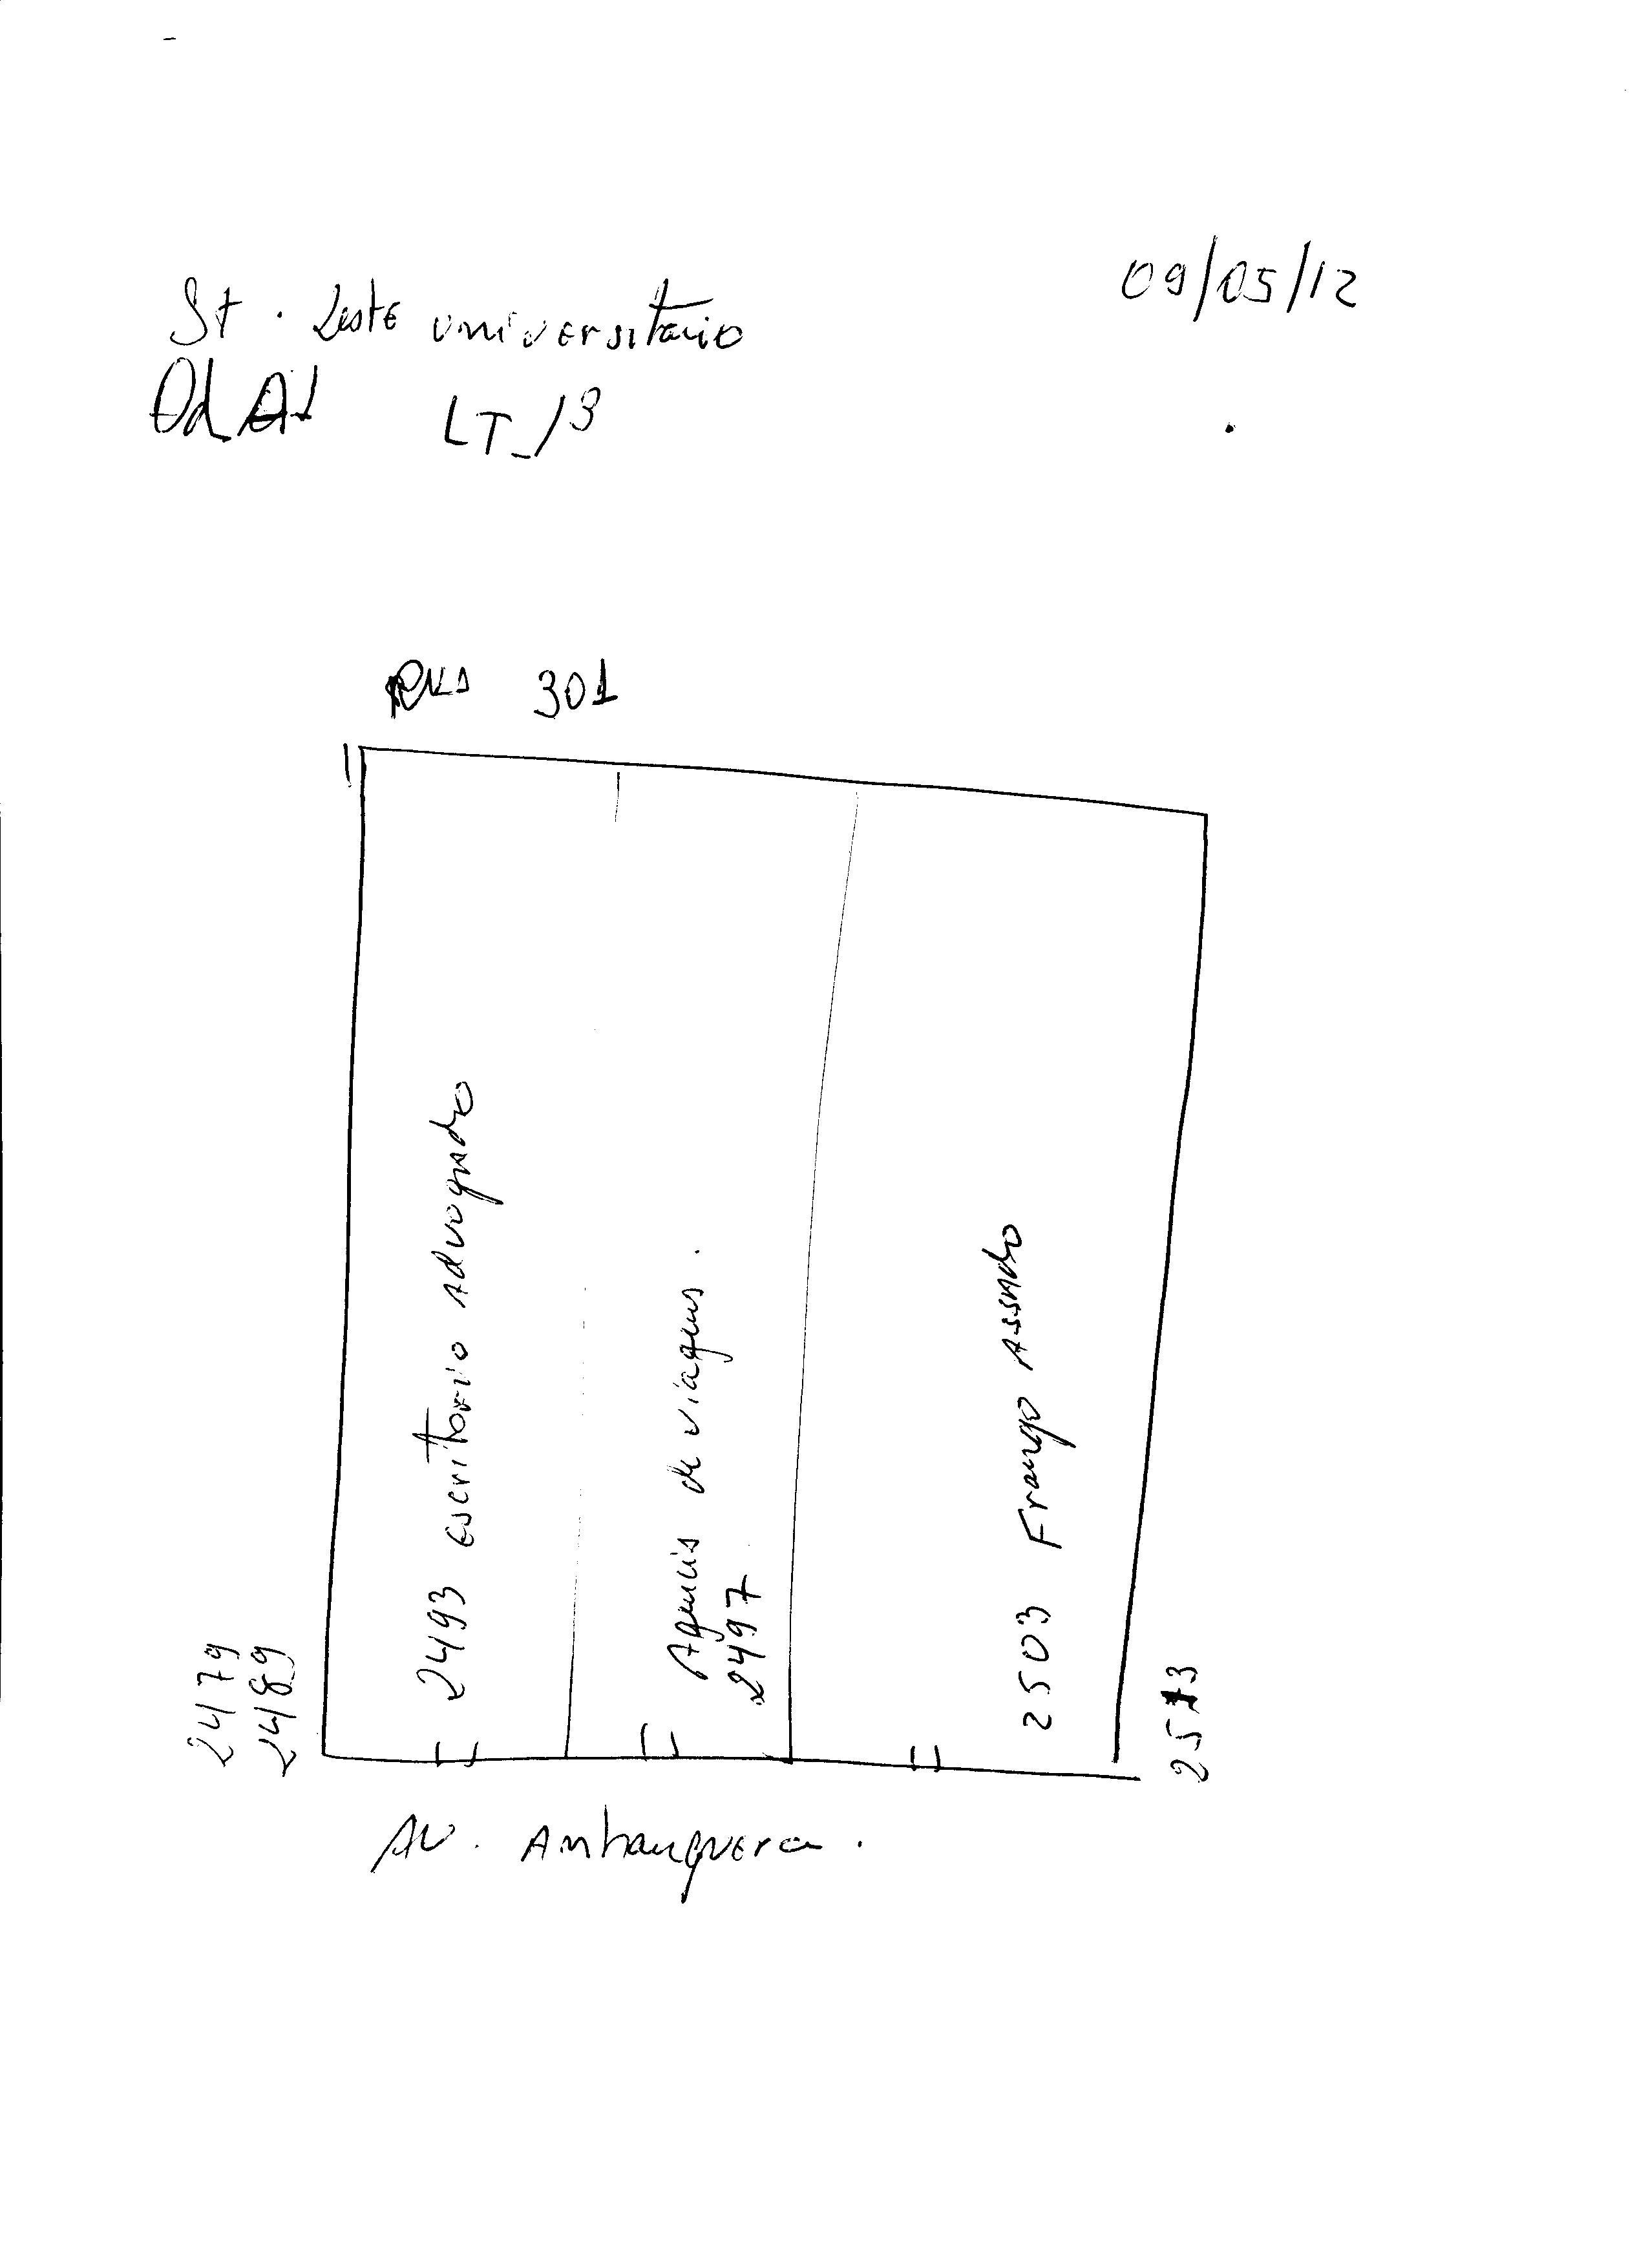 09/05/12
St. Leste universitario
Qd A1 LT_13
RUA 301
2493 escritorio Advogado
Agencia de viagens.
2497
2503 Frango Assado
2479
2489
2513
Av. Anhanguera.